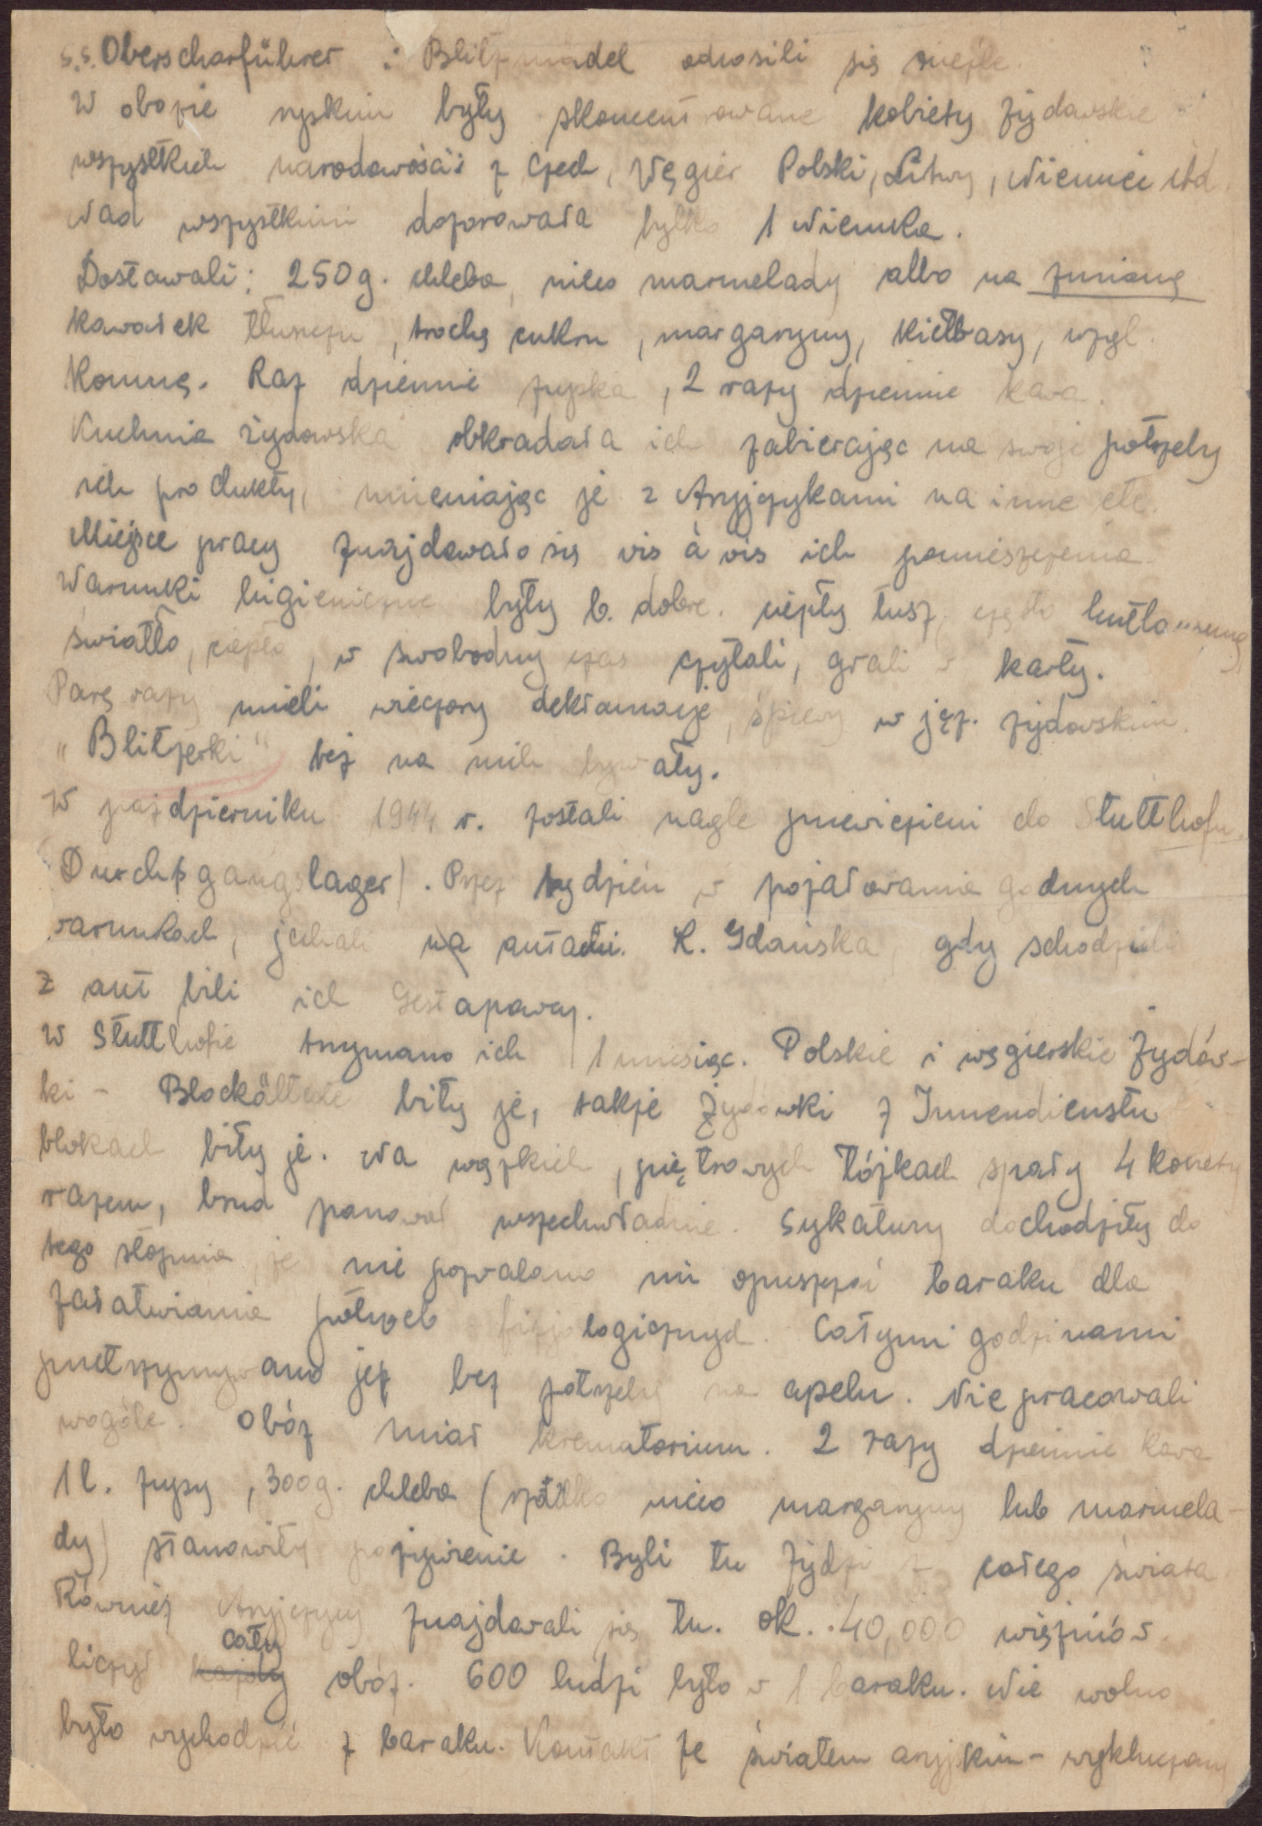 s.s. Oberscharführer i Blitzmädel odnosili się nieźle.
W obozie ryskim były skoncentrowane kobiety żydowskie
wszystkich narodowości z Czech, Węgier Polski, Litwy, Niemiec itd.
Nad wszystkimi dozorowała tylko 1 Niemka.
Dostawali: 250 g. chleba, nieco marmelady albo na zmianę
kawałek tłuszczu, trochę cukru, margaryny, kiełbasy, wzgl.
koninę. Raz dziennie zupka, 2 razy dziennie kawa.
Kuchnia żydowska obkradała ich zabierając na swoje potrzeby
ich produkty, mieniając je z Aryjczykami na inne etc.
Miejsce pracy znajdowało się vis à vis ich pomieszczenia.
Warunki higieniczne były b. dobre. ciepły tusz, często
światło, ciepło, w swobodny czas czytali, grali w karty.
Parę razy mieli wieczory deklamacje, śpiewy w jęz. żydowskim.
"Blitzerki" też na nich bywały.
W październiku 1944 r. zostali nagle przewiezieni do Stutthofu
Durchgangslager). Przez tydzień w pożałowania godnych
warunkach, jechali na autami. K. Gdańska, gdy schodzili
z aut bili ich Gestapowcy.
W Stutthofie trzymano ich 1 miesiąc. Polskie i węgierskie Żydów-
ki - Blockälteste biły je, także Żydówki z Innendienstu
blokach biły je. Na wązkich, piętrowych łóżkach spały 4 kobiety
razem, brud panował wszechwładnie. Sykatury dochodziły do
tego stopnia, że nie pozwalano im opuszczać baraku dla
załatwiania potrzeb fizjologicznych. Całymi godzinami
przetrzymywano jeż bez potrzeby na apelu. Nie pracowali
wogóle. Obóz miał krematorium. 2 razy dziennie kawa
1 l. zupy, 300 g. chleba (rzadko nieco margaryny lub marmela-
dy) stanowiły pożywienie. Byli tu Żydzi z całego świata
Również Aryjczycy znajdowali się tu. ok. 40,000 więźniów
liczył każdy cały obóz. 600 ludzi było w 1 baraku. Nie wolno
było wychodzić z baraku. Kontakt ze światem aryjskim - wykluczony